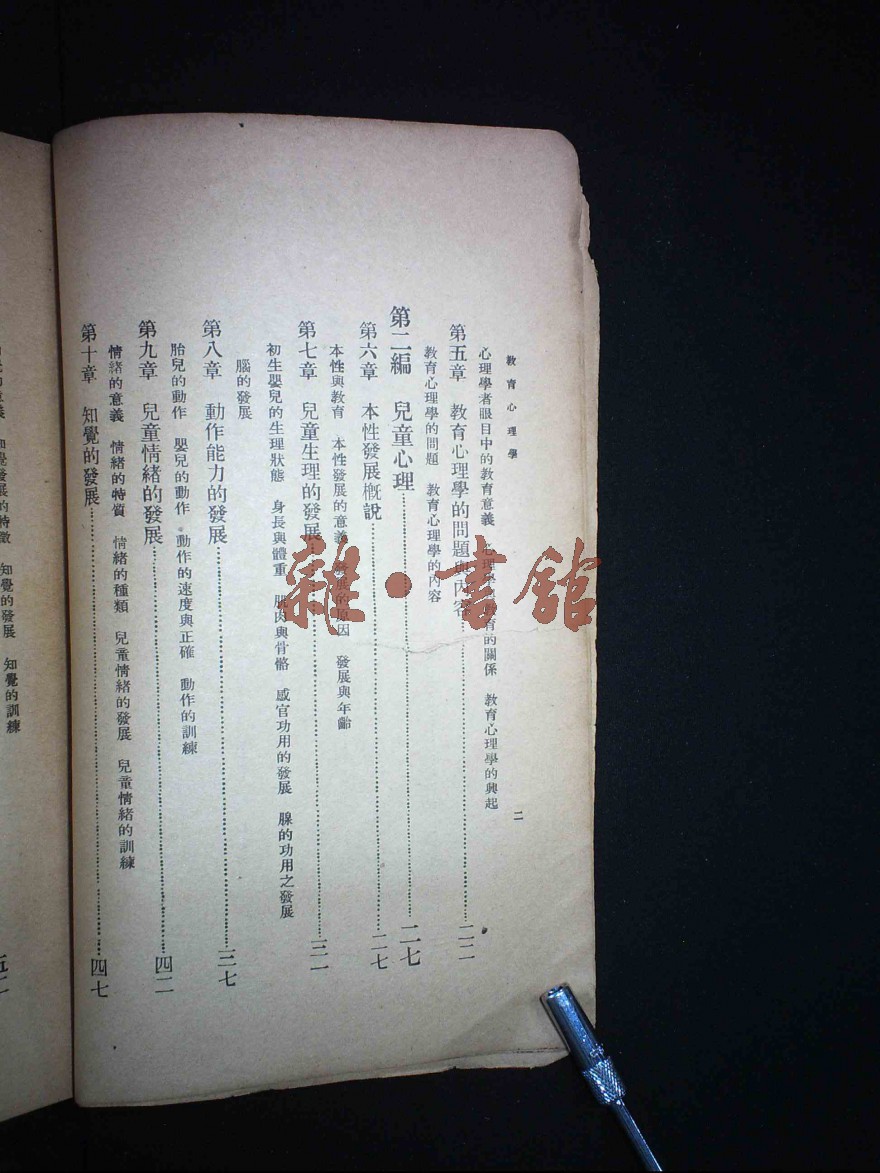 教育心理學
二
心理學者眼目中的教育意義　心理學與教育的關係　教育心理學的興起
第五章　教育心理學的問題與內容……二二
教育心理學的問題　教育心理學的內容
第二編　兒童心理……二七
第六章　本性發展概說……二七
本性與教育　本性發展的意義　發展的原因　發展與年齡
第七章　兒童生理的發展……三一
初生嬰兒的生理狀態　身長與體重　肌肉與骨骼　感官功用的發展　腺的功用之發展
腦的發展
第八章　動作能力的發展……三七
胎兒的動作　嬰兒的動作　動作的速度與正確　動作的訓練
第九章　兒童情緒的發展……四二
情緒的意義　情緒的特質　情緒的種類　兒童情緒的發展　兒童情緒的訓練
第十章　知覺的發展……四七
知覺發展的特徵　知覺的發展　知覺的訓練
雜·書館